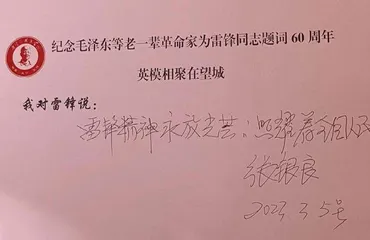 纪念毛泽东等老一辈革命家为雷锋同志题词60周年
英模相聚在望城
我对雷锋说:
雷锋精神永放光芒;照耀着全国人民
张银良
2023 3 5号